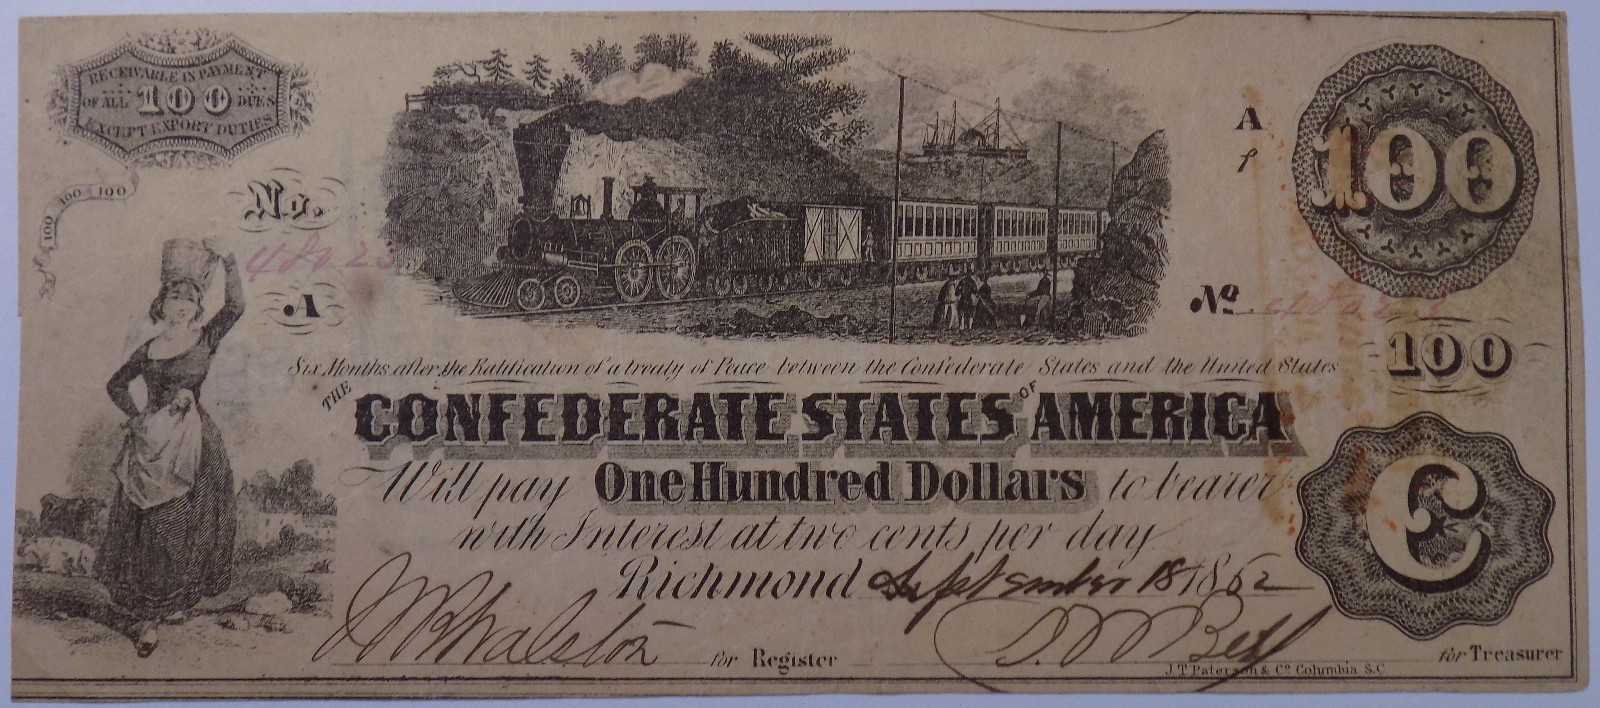 RECEIVABLE IN PAYMENT
OF ALL 100 DUES
EXCEPT EXPORT DUTIES
100 100 100
No.
A
A
f
100
No.
100
Six Months after the Ratification of a treaty of Peace between the Confederate States and the United States
THE CONFEDERATE STATES OF AMERICA
Will pay One Hundred Dollars to bearer
with Interest at two cents per day
C
Richmond September 18 1862
for Register
for Treasurer
J.T. Paterson & Co Columbia S.C.